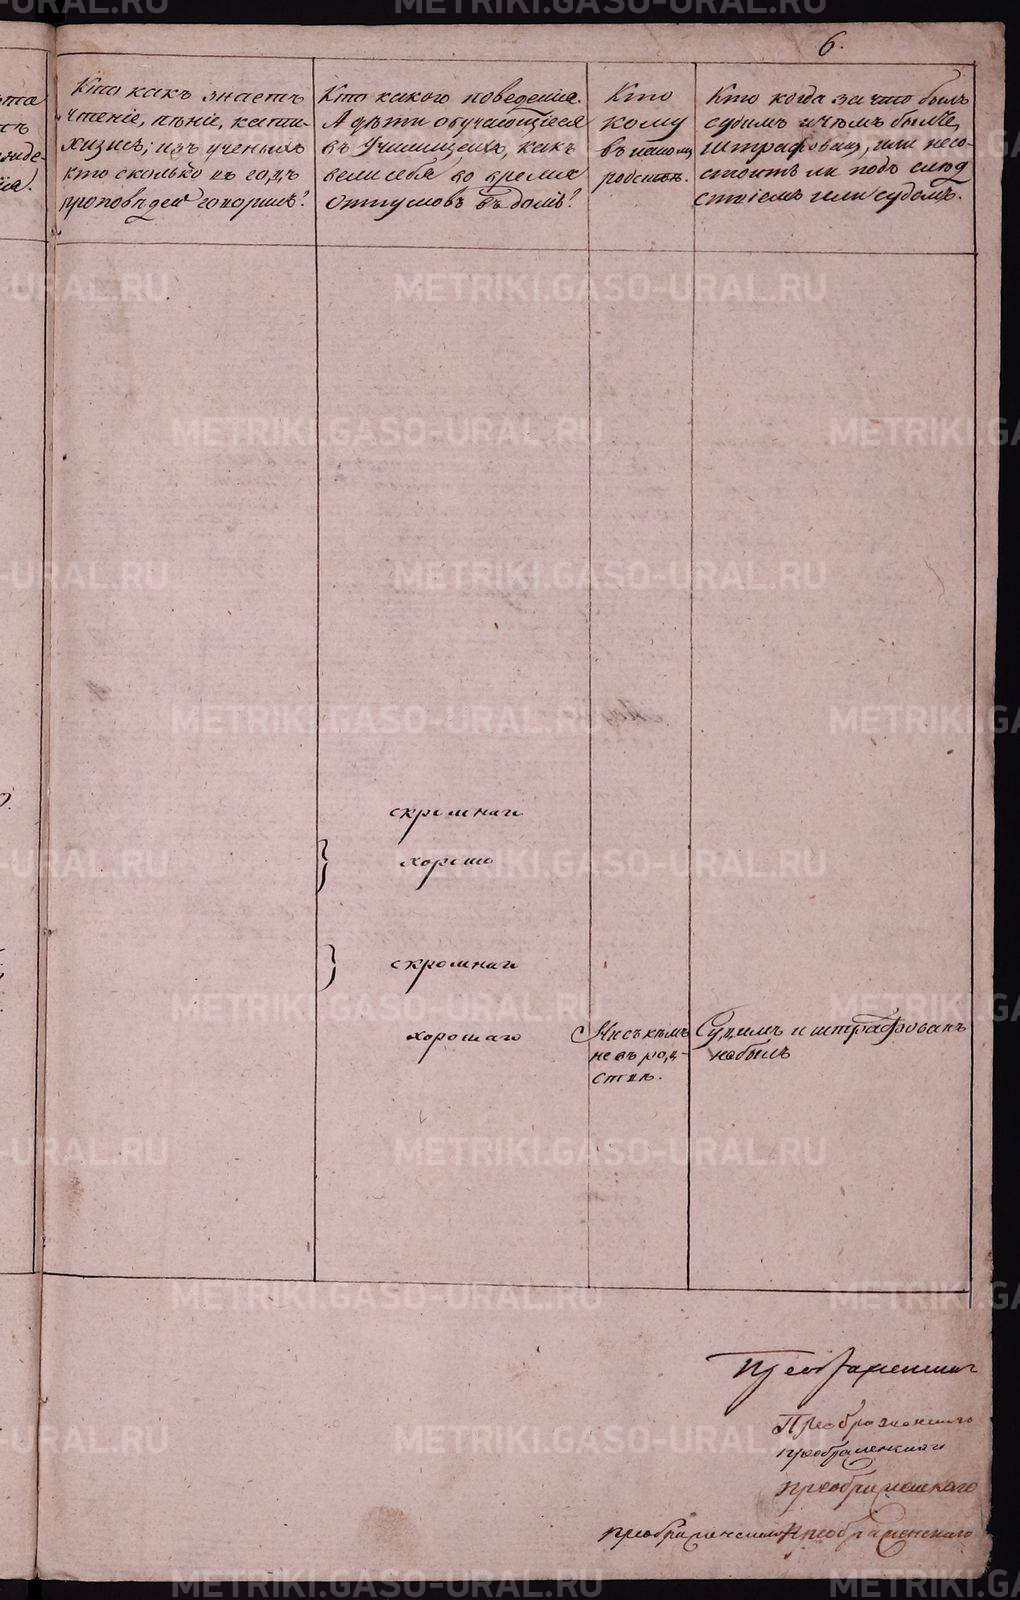 6.
Кто какъ знаетъ
чтеніе, пѣніе, кати-
хизисъ; изъ ученыхъ
кто сколько въ годъ
проповѣдей говорилъ?
Кто какого поведенія.
А дѣти обучающіеся
въ Училищахъ, какъ
вели себя во время
отпусковъ въ домъ?
Кто
кому
въ какомъ
родствѣ.
Кто когда за что былъ
судимъ и чѣмъ былъ
штрафованъ, или не со-
стоитъ ли подъ слѣд
ствіемъ или судомъ.
скромнаго
хорошо
скромнаго
хорошаго
Ни съ кѣмъ
не въ род-
ствѣ.
Судимъ и штрафованъ
не былъ
Преображенскаго
Преображенскаго
преображенскаго
преображенскаго
преображенскаго Преображенскаго
METRIKI.GASO-URAL.RU